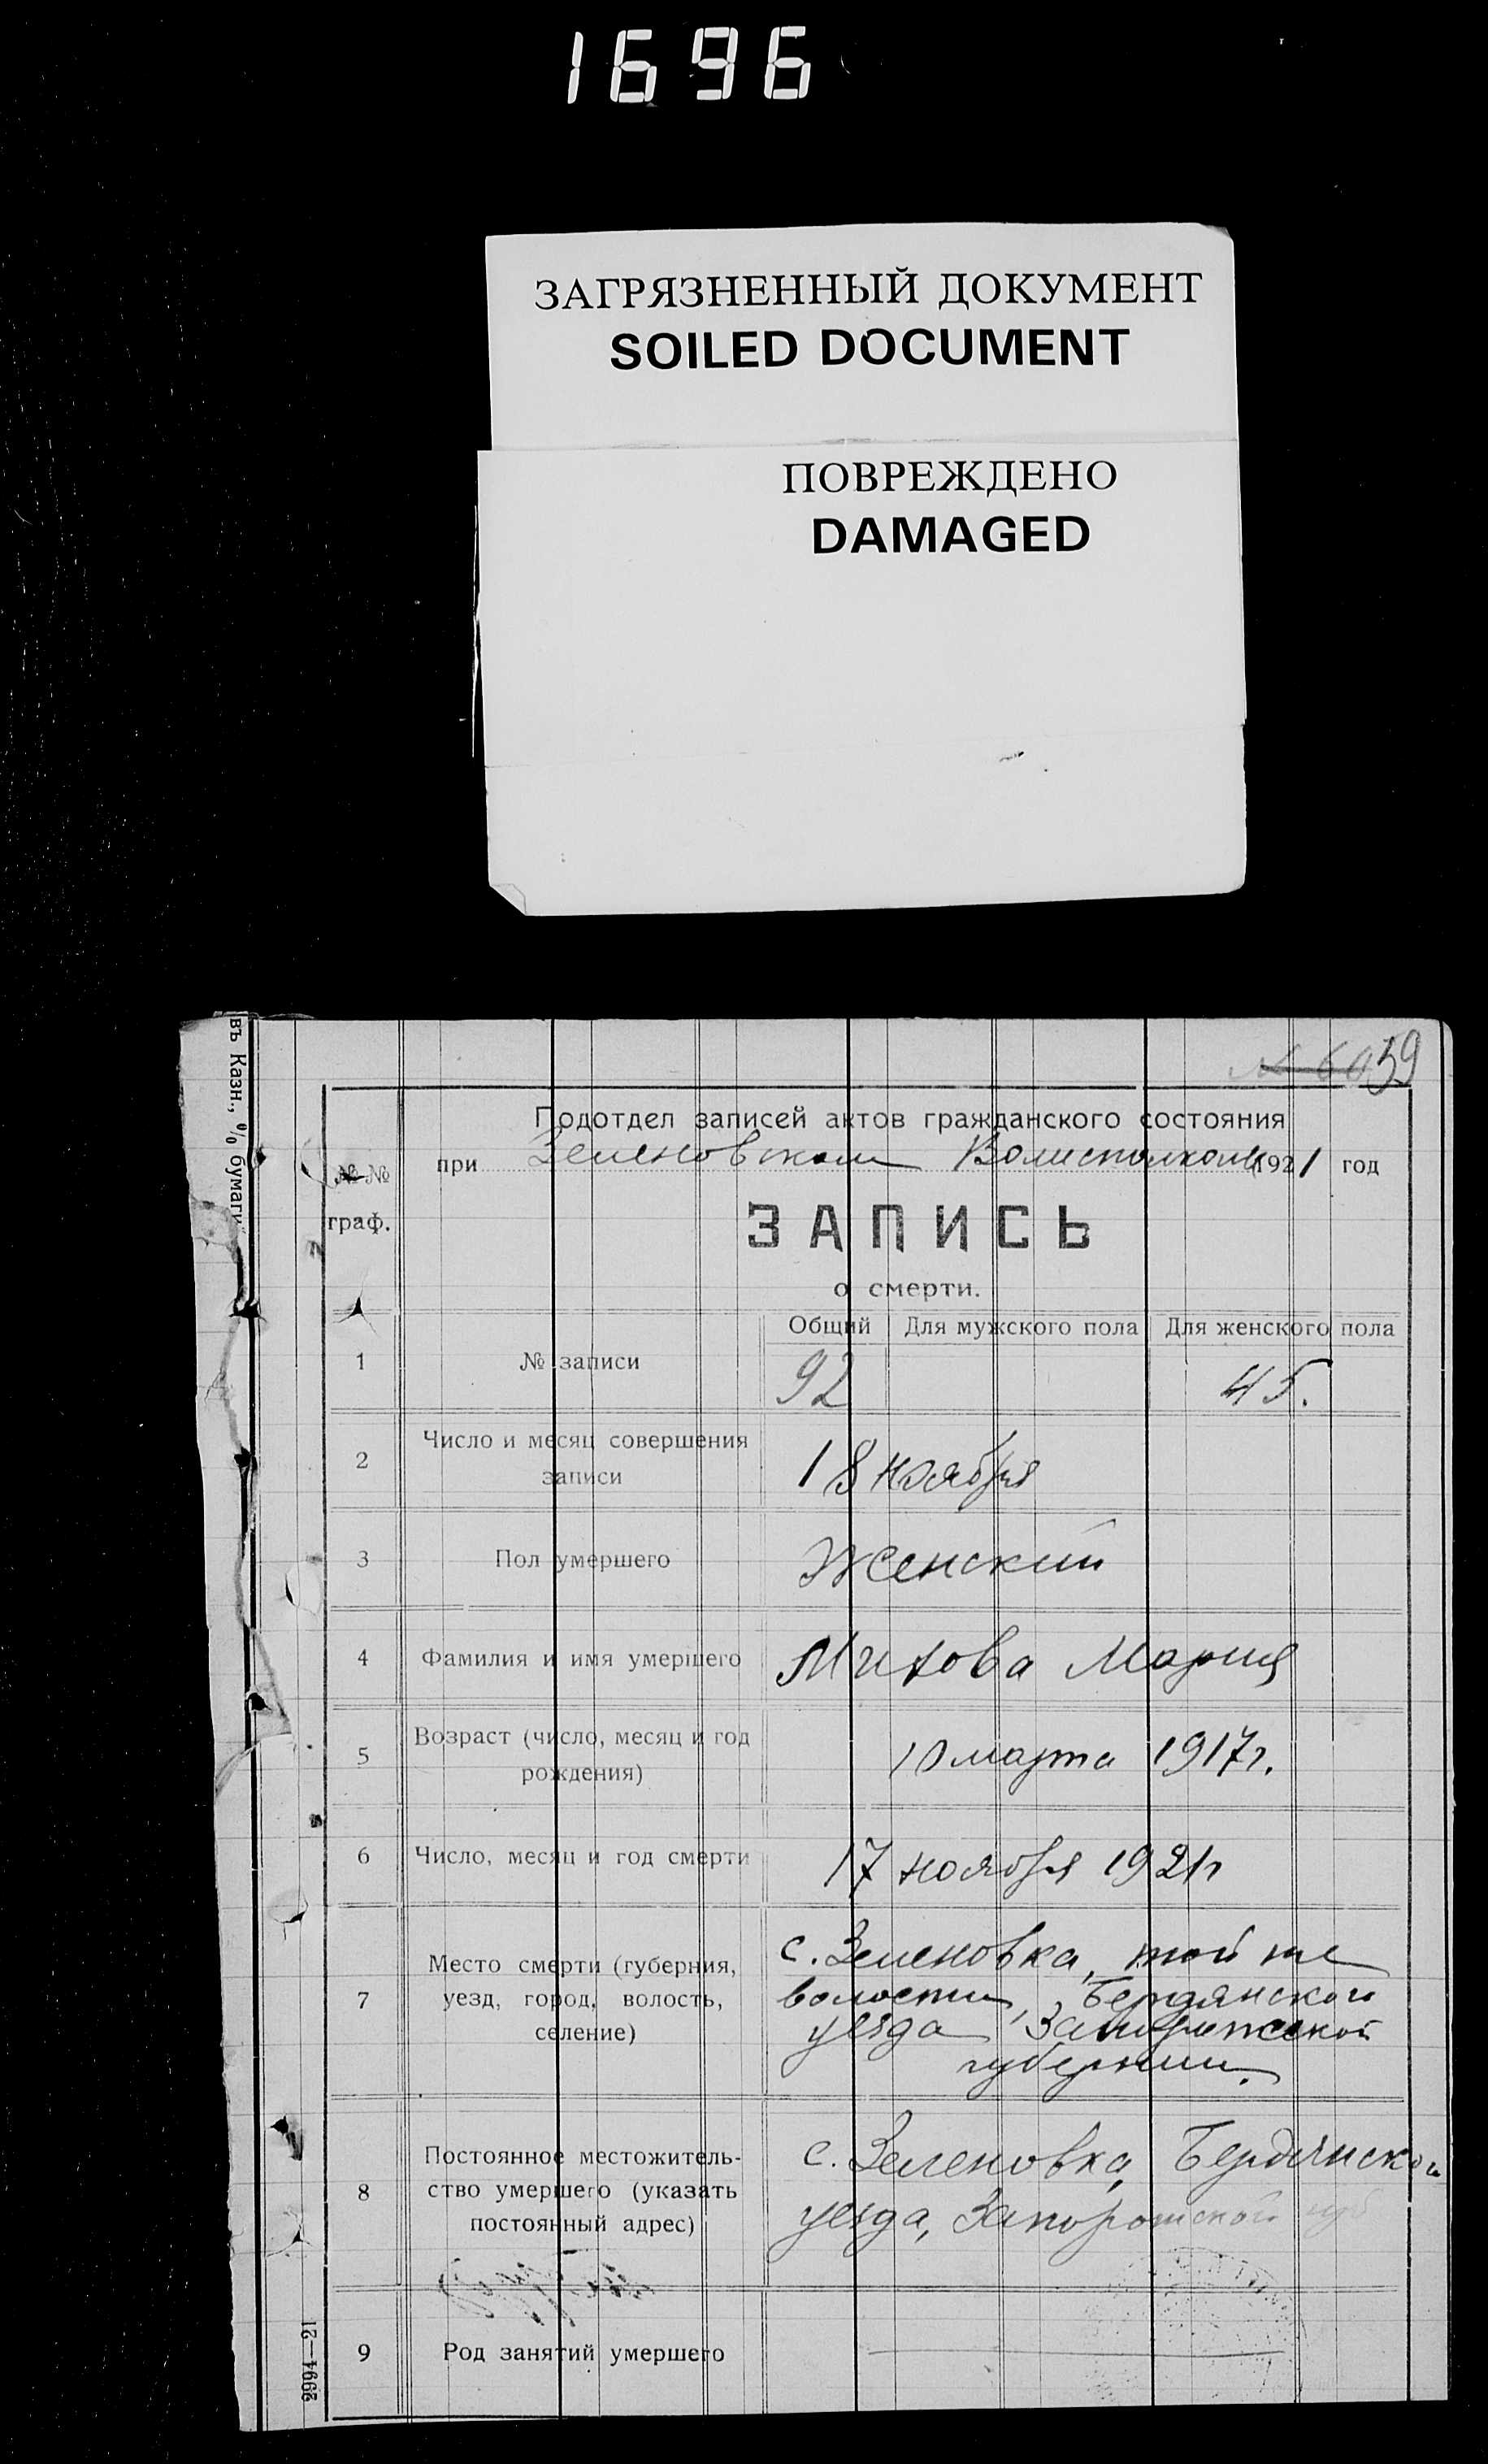 1696
ЗАГРЯЗНЕННЫЙ ДОКУМЕНТ
SOILED DOCUMENT
ПОВРЕЖДЕНО
DAMAGED
59
въ Казн., % бумаги
Подотдел записей актов гражданского состояния
при Зеленовском Волисполкоме 1921 год
№№
граф.
ЗАПИСЬ
о смерти.
Общий Для мужского пола Для женского пола
1 № записи 92 45.
2 Число и месяц совершения
записи 18 ноября
3 Пол умершего Женский
4 Фамилия и имя умершего Митова Мария
5 Возраст (число, месяц и год
рождения) 10 марта 1917 г.
6 Число, месяц и год смерти 17 ноября 1921 г
7 Место смерти (губерния,
уезд, город, волость,
селение)
с. Зеленовка, той же
волости, Бердянского
уезда Запорожской
губернии.
8 Постоянное местожитель-
ство умершего (указать
постоянный адрес)
с. Зеленовка, Бердянского
уезда, Запорожской губ
9 Род занятий умершего
2994—21